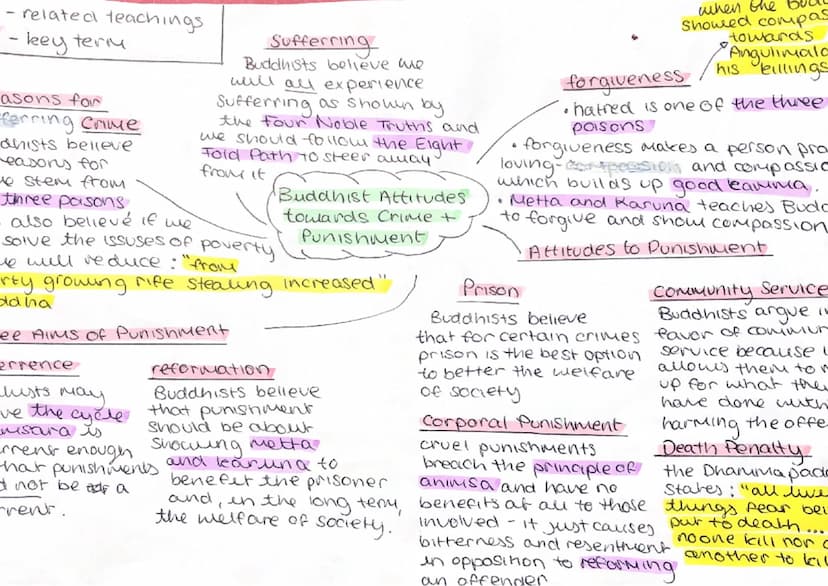 - related teachings
- key term
Sufferring
Buddhists believe we
will all experience
sufferring as shown by
the Four Noble Truths and
we should follow the Eight
Fold Path to steer away
from it
when the Bud
showed compas
towards
Angulimala
his killings
forgiveness
• hatred is one of the three
poisons
• forgiveness makes a person pra
loving- and compassio
which builds up good kamma.
• Metta and Karuna teaches Budd
to forgive and show compassion
asons for
ferring Crime
dhists believe
reasons for
e stem from
three poisons
also believé if we
solve the issuses of poverty
we will reduce: "from
rty growing rife stealing increased"
uddha
Buddhist Attitudes
towards Crime +
Punishment
Attitudes to Punishment
ee Aims of Punishment
errence
dhists may
ve the cycle
amsara is
errent enough
that punishments
d not be a
rrent.
reformation
Buddhists believe
that punishment
should be about
showing Metta
and karuna to
benefit the prisoner
and, in the long term,
the welfare of society.
Prison
Buddhists believe
that for certain crimes
prison is the best option
to better the welfare
of society
Corporal Punishment
cruel punishments
breach the principle of
animsa and have no
benefits at all to those
involved - it just causes
bitterness and resentment
in opposition to reforming
an offender
Community Service
Buddhists argue in
favor of commun
service because i
allows them to m
up for what the
have done with
harming the offe
Death Penalty
the Dhammapada
states: "all live
things fear bei
put to death...
no one kill nor c
another to kill